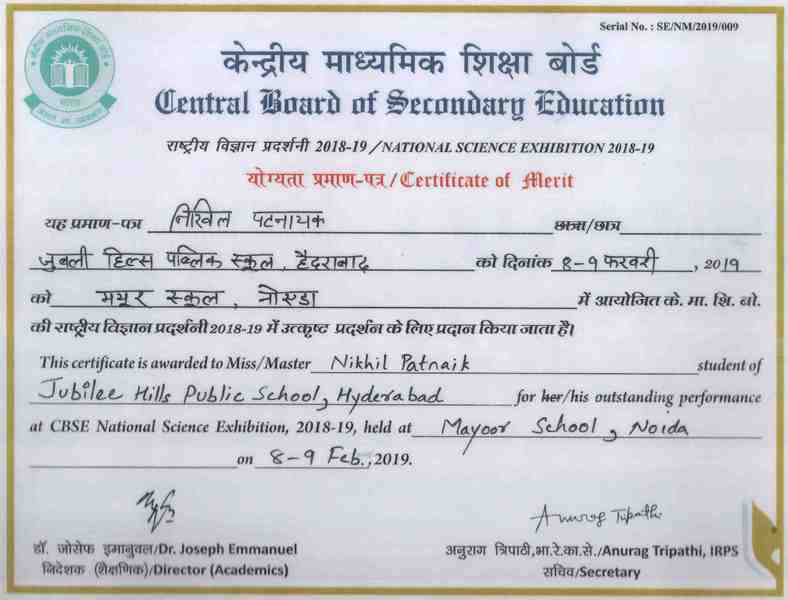 Serial No. : SE/NM/2019/009
केन्द्रीय माध्यमिक शिक्षा बोर्ड
Central Board of Secondary Education
राष्ट्रीय विज्ञान प्रदर्शनी 2018-19 / NATIONAL SCIENCE EXHIBITION 2018-19
योग्यता प्रमाण-पत्र / Certificate of Merit
यह प्रमाण-पत्र निखिल पटनायक छात्रा/छात्र
जुबली हिल्स पब्लिक स्कूल, हैदराबाद को दिनांक 8-9 फरवरी, 2019
को मयूर स्कूल, नोएडा में आयोजित के. मा. शि. बो.
की राष्ट्रीय विज्ञान प्रदर्शनी 2018-19 में उत्कृष्ट प्रदर्शन के लिए प्रदान किया जाता है।
This certificate is awarded to Miss/Master Nikhil Patnaik student of
Jubilee Hills Public School, Hyderabad for her/his outstanding performance
at CBSE National Science Exhibition, 2018-19, held at Mayoor School, Noida
on 8-9 Feb., 2019.
Anurag Tripathi
डॉ. जोसेफ इमानुवल/Dr. Joseph Emmanuel
निदेशक (शैक्षणिक)/Director (Academics)
अनुराग त्रिपाठी,भा.रे.का.से./Anurag Tripathi, IRPS
सचिव/Secretary
भारत